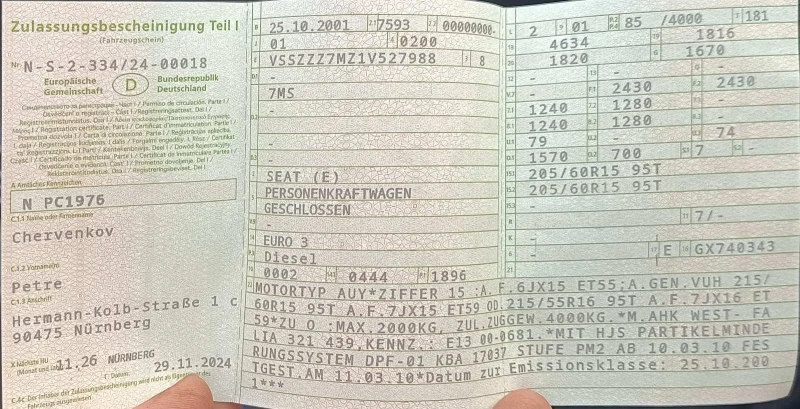 Zulassungsbescheinigung Teil I
(Fahrzeugschein)
Nr. N-S-2-334/24-00018
Europäische Gemeinschaft
D
Bundesrepublik Deutschland
A Amtliches Kennzeichen
N PC1976
C.1.1 Name oder Firmenname
Chervenkov
C.1.2 Vorname(n)
Petre
C.1.3 Anschrift
Hermann-Kolb-Straße 1 c
90475 Nürnberg
X Nächste HU
11.26 NÜRNBERG
29.11.2024
C.4c Der Inhaber der Zulassungsbescheinigung wird nicht als Eigentümer des Fahrzeugs ausgewiesen.
25.10.2001 7593 00000000-
01 0200
VSSZZZ7MZ1V527988 8
-
7MS
-
-
-
SEAT (E)
PERSONENKRAFTWAGEN
GESCHLOSSEN
-
EURO 3
Diesel
0002 0444 1896
2 01 85 /4000 181
4634 1816
1820 1670
- - -
- 2430 2430
1240 1280 -
1240 1280 -
79 - 74
1570 700 7 -
205/60R15 95T
205/60R15 95T
-
- 7/-
-
- E GX740343
MOTORTYP AUY*ZIFFER 15.:A.F.6JX15 ET55;A.GEN.VUH 215/
60R15 95T A.F.7JX15 ET59 OD.215/55R16 95T A.F.7JX16 ET
59*ZU O :MAX.2000KG, ZUL.ZUGGEW.4000KG.*M.AHK WEST- FA
LIA 321 439,KENNZ.: E13 00-0681.*MIT HJS PARTIKELMINDE
RUNGSSYSTEM DPF-01 KBA 17037 STUFE PM2 AB 10.03.10 FES
TGEST.AM 11.03.10*Datum zur Emissionsklasse: 25.10.200
1***